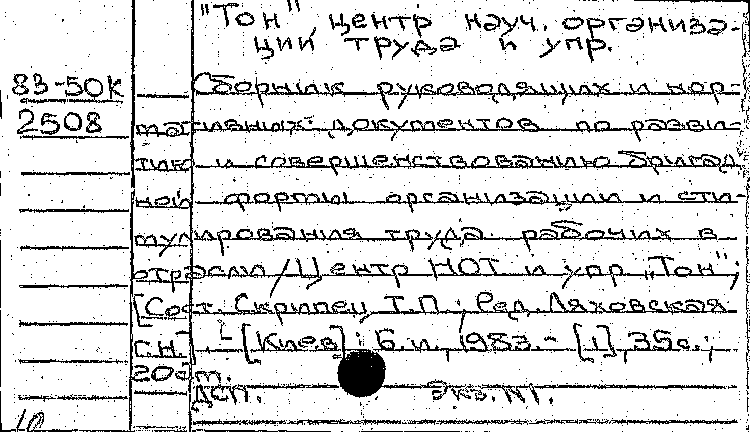 "Тон", центр науч. организа-
ции труда и упр.
83-50К Сборник руководящих и нор-
2508 мативных документов по разви-
тию и совершенствованию бригад
ной формы организации и сти-
мулирования труда рабочих в
отрасли/Центр НОТ и упр „Тон";
[Сост. Скрипец Т.П.; Ред. Ляховская
Г.Н.]. - [Киев]: Б.и., 1983.- [1], 35с.;
20см.
ДСП. Экз. N1.
10